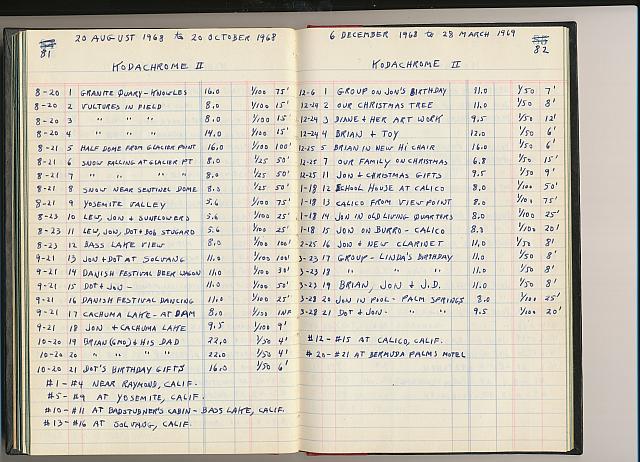 81
20 AUGUST 1968 to 20 OCTOBER 1968
KODACHROME II
8-20 1 GRANITE QUARY-KNOWLES 16.0 1/100 75'
8-20 2 VULTURES IN FIELD 8.0 1/100 15'
8-20 3 " " " 8.0 1/100 15'
8-20 4 " " " 14.0 1/100 15'
8-21 5 HALF DOME FROM GLACIER POINT 16.0 1/100 100'
8-21 6 SNOW FALLING AT GLACIER PT 8.0 1/25 50'
8-21 7 " " " " 8.0 1/25 50'
8-21 8 SNOW NEAR SENTINEL DOME 8.0 1/25 50'
8-21 9 YOSEMITE VALLEY 5.6 1/100 75'
8-23 10 LEW, JON & SUNFLOWERS 5.6 1/100 25'
8-23 11 LEW, JON, DOT & BOB STUGARD 5.6 1/100 25'
8-23 12 BASS LAKE VIEW 8.0 1/100 100'
9-21 13 JON & DOT AT SOLVANG 11.0 1/100 100'
9-21 14 DANISH FESTIVAL BEER WAGON 11.0 1/100 30'
9-21 15 DOT & JON - 11.0 1/100 50'
9-21 16 DANISH FESTIVAL DANCING 11.0 1/100 25'
9-21 17 CACHUMA LAKE - AT DAM 8.0 1/100 INF
9-21 18 JON & CACHUMA LAKE 9.5 1/100 9'
10-20 19 BRIAN (GMO) & HIS DAD 22.0 1/50 4'
10-20 20 " " " " 22.0 1/50 4'
10-20 21 DOT'S BIRTHDAY GIFTS 16.0 1/50 6'
#1-#4 NEAR RAYMOND, CALIF.
#5-#9 AT YOSEMITE, CALIF.
#10-#11 AT BADSTUBNER'S CABIN - BASS LAKE, CALIF.
#13-#16 AT SOLVANG, CALIF.
82
6 DECEMBER 1968 to 28 MARCH 1969
KODACHROME II
12-6 1 GROUP ON JON'S BIRTHDAY 11.0 1/50 7'
12-24 2 OUR CHRISTMAS TREE 11.0 1/50 8'
12-24 3 DIANE & HER ART WORK 9.5 1/50 12'
12-24 4 BRIAN & TOY 12.0 1/50 6'
12-25 5 BRIAN IN NEW HI CHAIR 16.0 1/50 6'
12-25 7 OUR FAMILY ON CHRISTMAS 6.8 1/50 15'
12-25 11 JON & CHRISTMAS GIFTS 9.5 1/50 9'
1-18 12 SCHOOL HOUSE AT CALICO 8.0 1/100 50'
1-18 13 CALICO FROM VIEW POINT 8.0 1/100 75'
1-18 14 JON IN OLD LIVING QUARTERS 8.0 1/100 25'
1-18 15 JON ON BURRO - CALICO 8.0 1/100 20'
2-25 16 JON & NEW CLARINET 11.0 1/50 8'
3-23 17 GROUP - LINDA'S BIRTHDAY 11.0 1/50 8'
3-23 18 " " " 11.0 1/50 8'
3-23 19 BRIAN, JON & J.D. 11.0 1/50 8'
3-28 20 JON IN POOL - PALM SPRINGS 8.0 1/100 25'
3-28 21 DOT & JON - " " 9.5 1/100 20'
#12-#15 AT CALICO, CALIF.
#20-#21 AT BERMUDA PALMS MOTEL